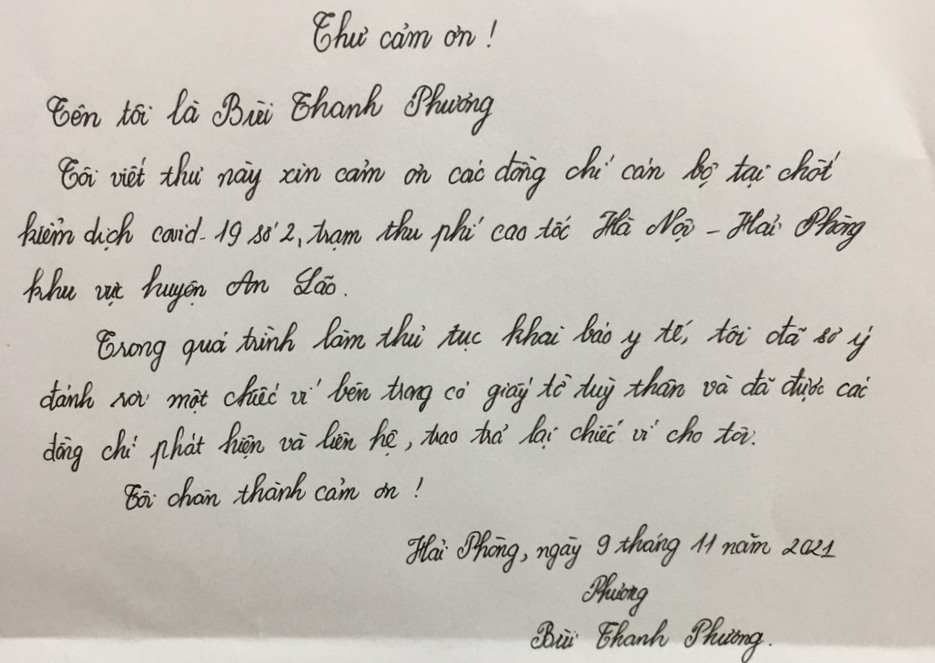 Thư cảm ơn!
Tên tôi là Bùi Thanh Phương
Tôi viết thư này xin cảm ơn các đồng chí cán bộ tại chốt
kiểm dịch covid-19 số 2, trạm thu phí cao tốc Hà Nội - Hải Phòng
khu vực huyện An Lão.
Trong quá trình làm thủ tục khai báo y tế, tôi đã sơ ý
đánh rơi một chiếc ví bên trong có giấy tờ tuỳ thân và đã được các
đồng chí phát hiện và liên hệ, trao trả lại chiếc ví cho tôi.
Tôi chân thành cảm ơn!
Hải Phòng, ngày 9 tháng 11 năm 2021
Phương
Bùi Thanh Phương.